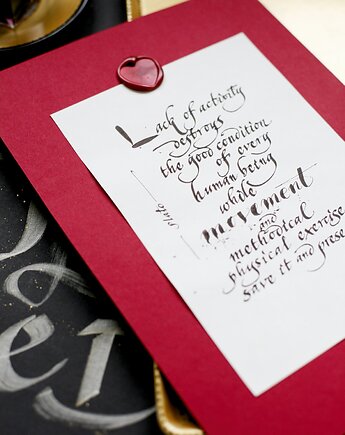 Lack of activity
destroys
the good condition
of every
human being
while
movement
and
methodical
physical exercise
save it and prese
Plato